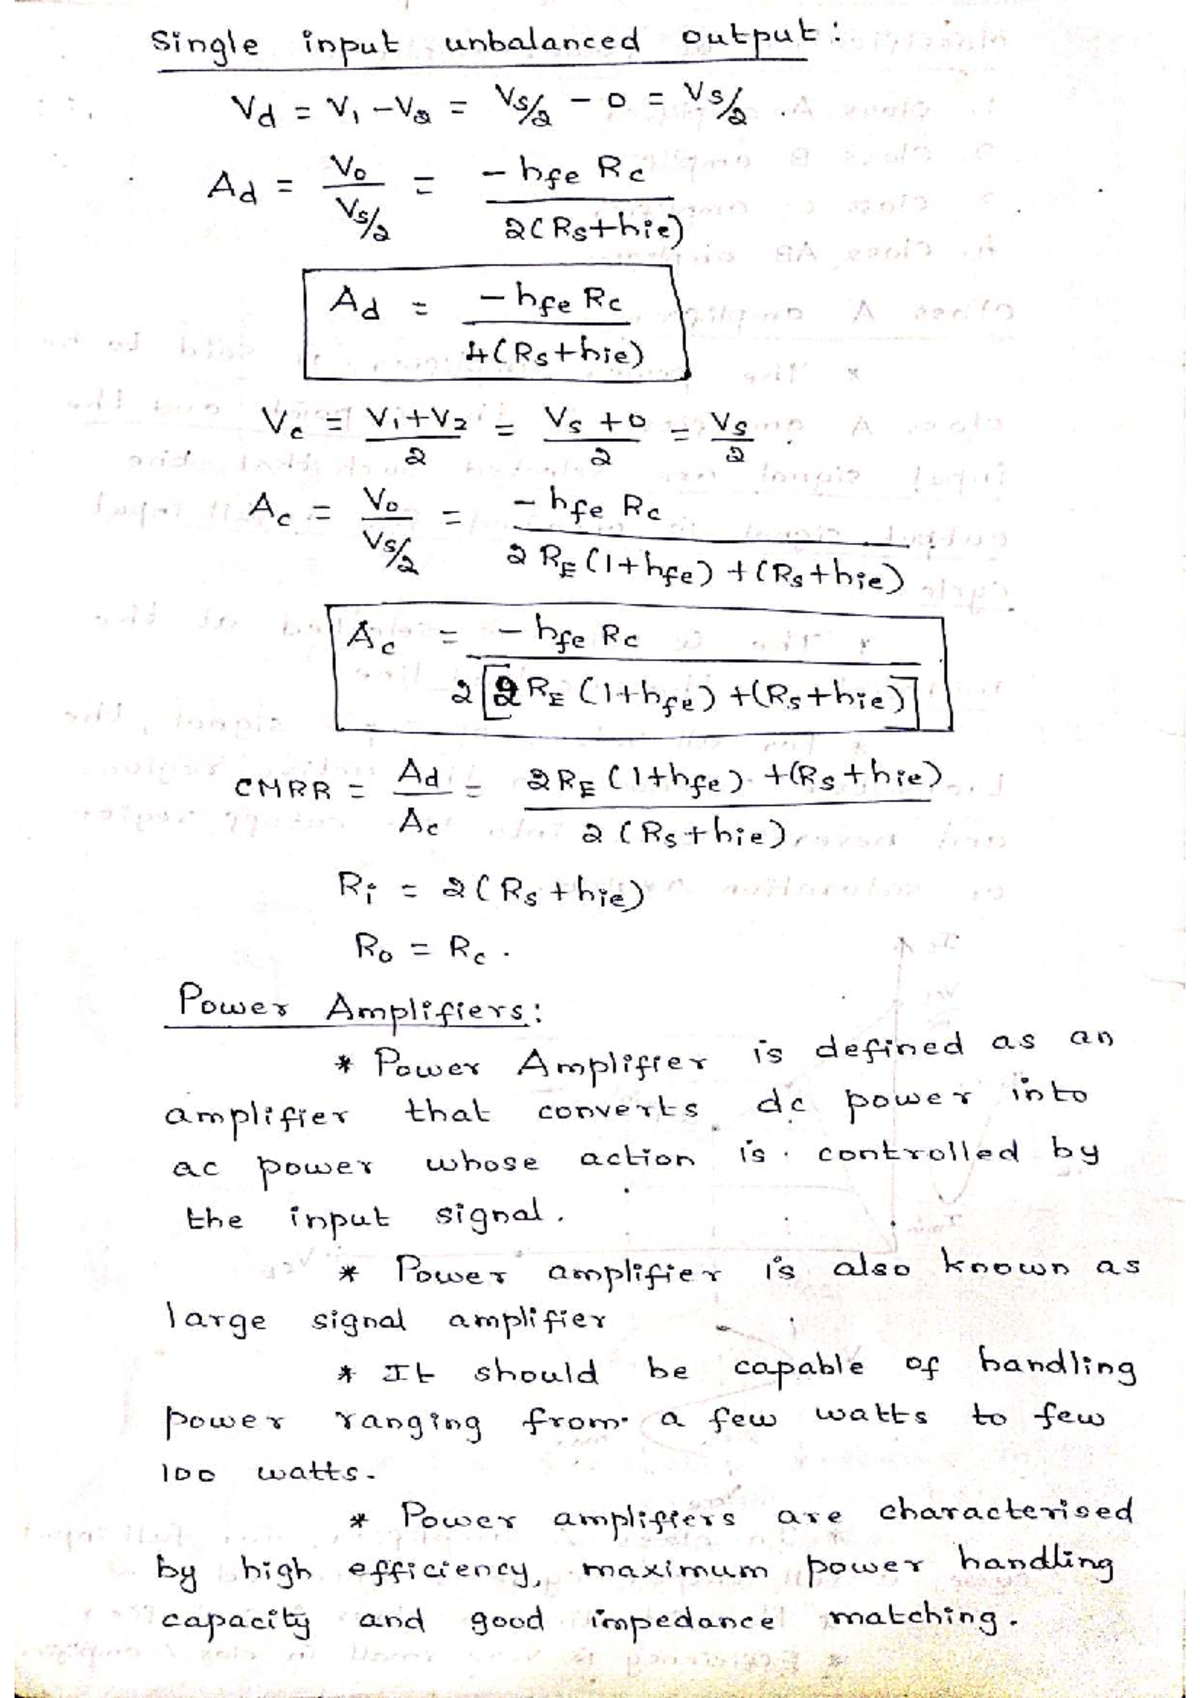 Single input unbalanced output:
Vd = V1 - V2 = Vs/2 - 0 = Vs/2 .
Ad = Vo / Vs/2 = - hfe Rc / 2(Rs+hie)
Ad = - hfe Rc / 4(Rs+hie)
Vc = V1+V2 / 2 = Vs + 0 / 2 = Vs / 2 .
Ac = Vo / Vs/2 = - hfe Rc / 2 RE (1+hfe) + (Rs+hie)
Ac = - hfe Rc / 2[2 RE (1+hfe) + (Rs+hie)]
CMRR = Ad / Ac = 2 RE (1+hfe) + (Rs+hie) / 2 (Rs+hie)
Ri = 2(Rs +hie)
Ro = Rc .
Power Amplifiers:
* Power Amplifier is defined as an
amplifier that converts dc power into
ac power whose action is controlled by
the input signal.
* Power amplifier is also known as
large signal amplifier
* It should be capable of handling
power ranging from a few watts to few
100 watts.
* Power amplifiers are characterised
by high efficiency, maximum power handling
capacity and good impedance matching.